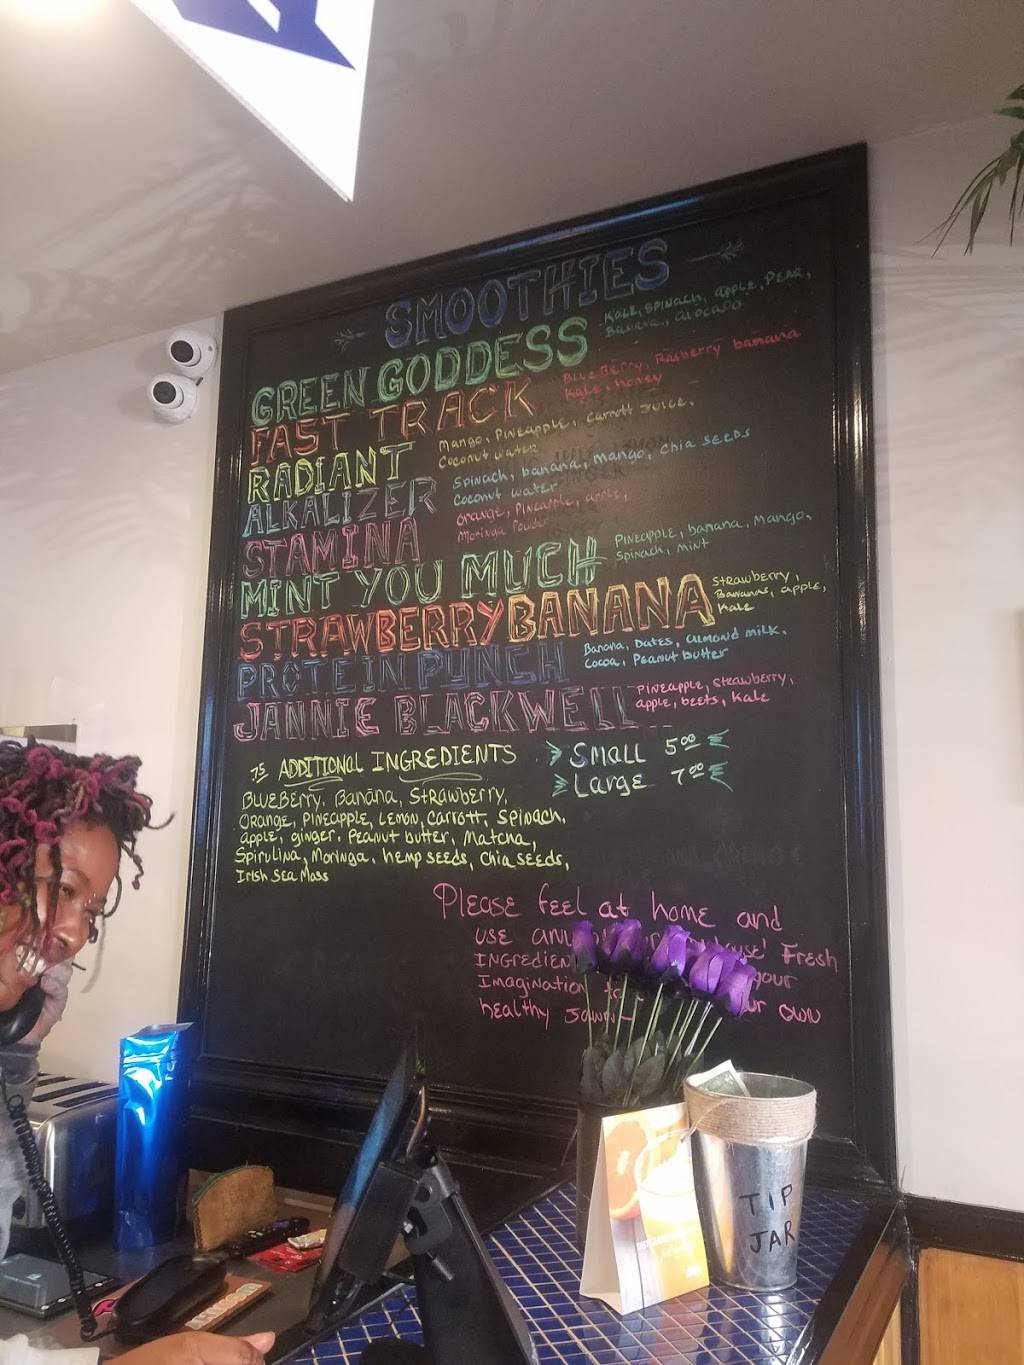 SMOOTHIES
GREEN GODDESS
Kale, Spinach, apple, Pear,
Banana, avocado
FAST TRACK
BlueBerry, Rasberry banana
Kale, Honey
RADIANT
Mango, Pineapple, Carrott Juice,
Coconut water
ALKALIZER
Spinach, banana, mango, chia seeds
Coconut water
STAMINA
Orange, Pineapple, apple,
Moringa Powder
MINT YOU MUCH
Pineapple, banana, Mango,
Spinach, mint
STRAWBERRY BANANA
Strawberry,
Bananas, apple,
Kale
PROTEIN PUNCH
Banana, Dates, almond milk,
Cocoa, Peanut butter
JANNIE BLACKWELL
Pineapple, Strawberry,
apple, beets, Kale
.75 ADDITIONAL INGREDIENTS
BLUEBERRY, Banana, Strawberry,
Orange, Pineapple, Lemon, Carrott, Spinach,
apple, ginger, Peanut butter, Matcha,
Spirulina, Moringa, hemp seeds, Chia seeds,
Irish Sea Moss
Small 5.00
Large 7.00
Please feel at home and
use any Fresh
Ingredien your
Imagination
healthy own
TIP
JAR